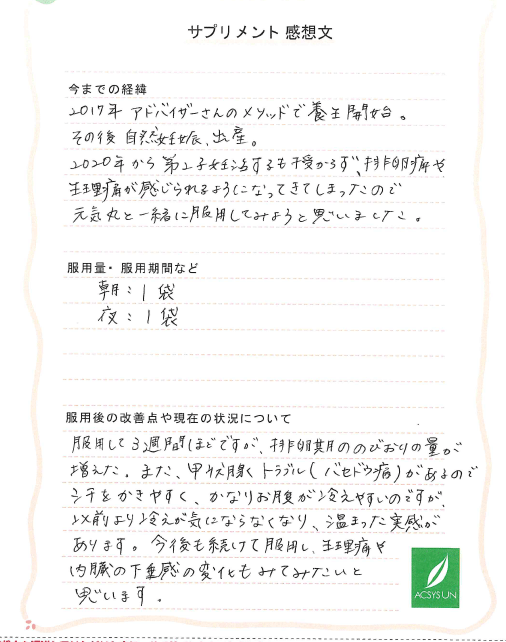 サプリメント 感想文
今までの経緯
2017年 アドバイザーさんのメソッドで養生開始。
その後 自然妊娠、出産。
2020年から第2子妊活するも授からず、排卵痛や
生理痛が感じられるようになってきてしまったので
元気丸と一緒に服用してみようと思いました。
服用量・服用期間など
朝：1袋
夜：1袋
服用後の改善点や現在の状況について
服用して3週間ほどですが、排卵期ののびおりの量が
増えた。また、甲状腺トラブル(バセドウ病)があるので
汗をかきやすく、かなりお腹が冷えやすいのですが、
以前より冷えが気にならなくなり、温まった実感が
あります。今後も続けて服用し、生理痛や
内臓の下垂感の変化もみてみたいと
思います。
ACSYSUN